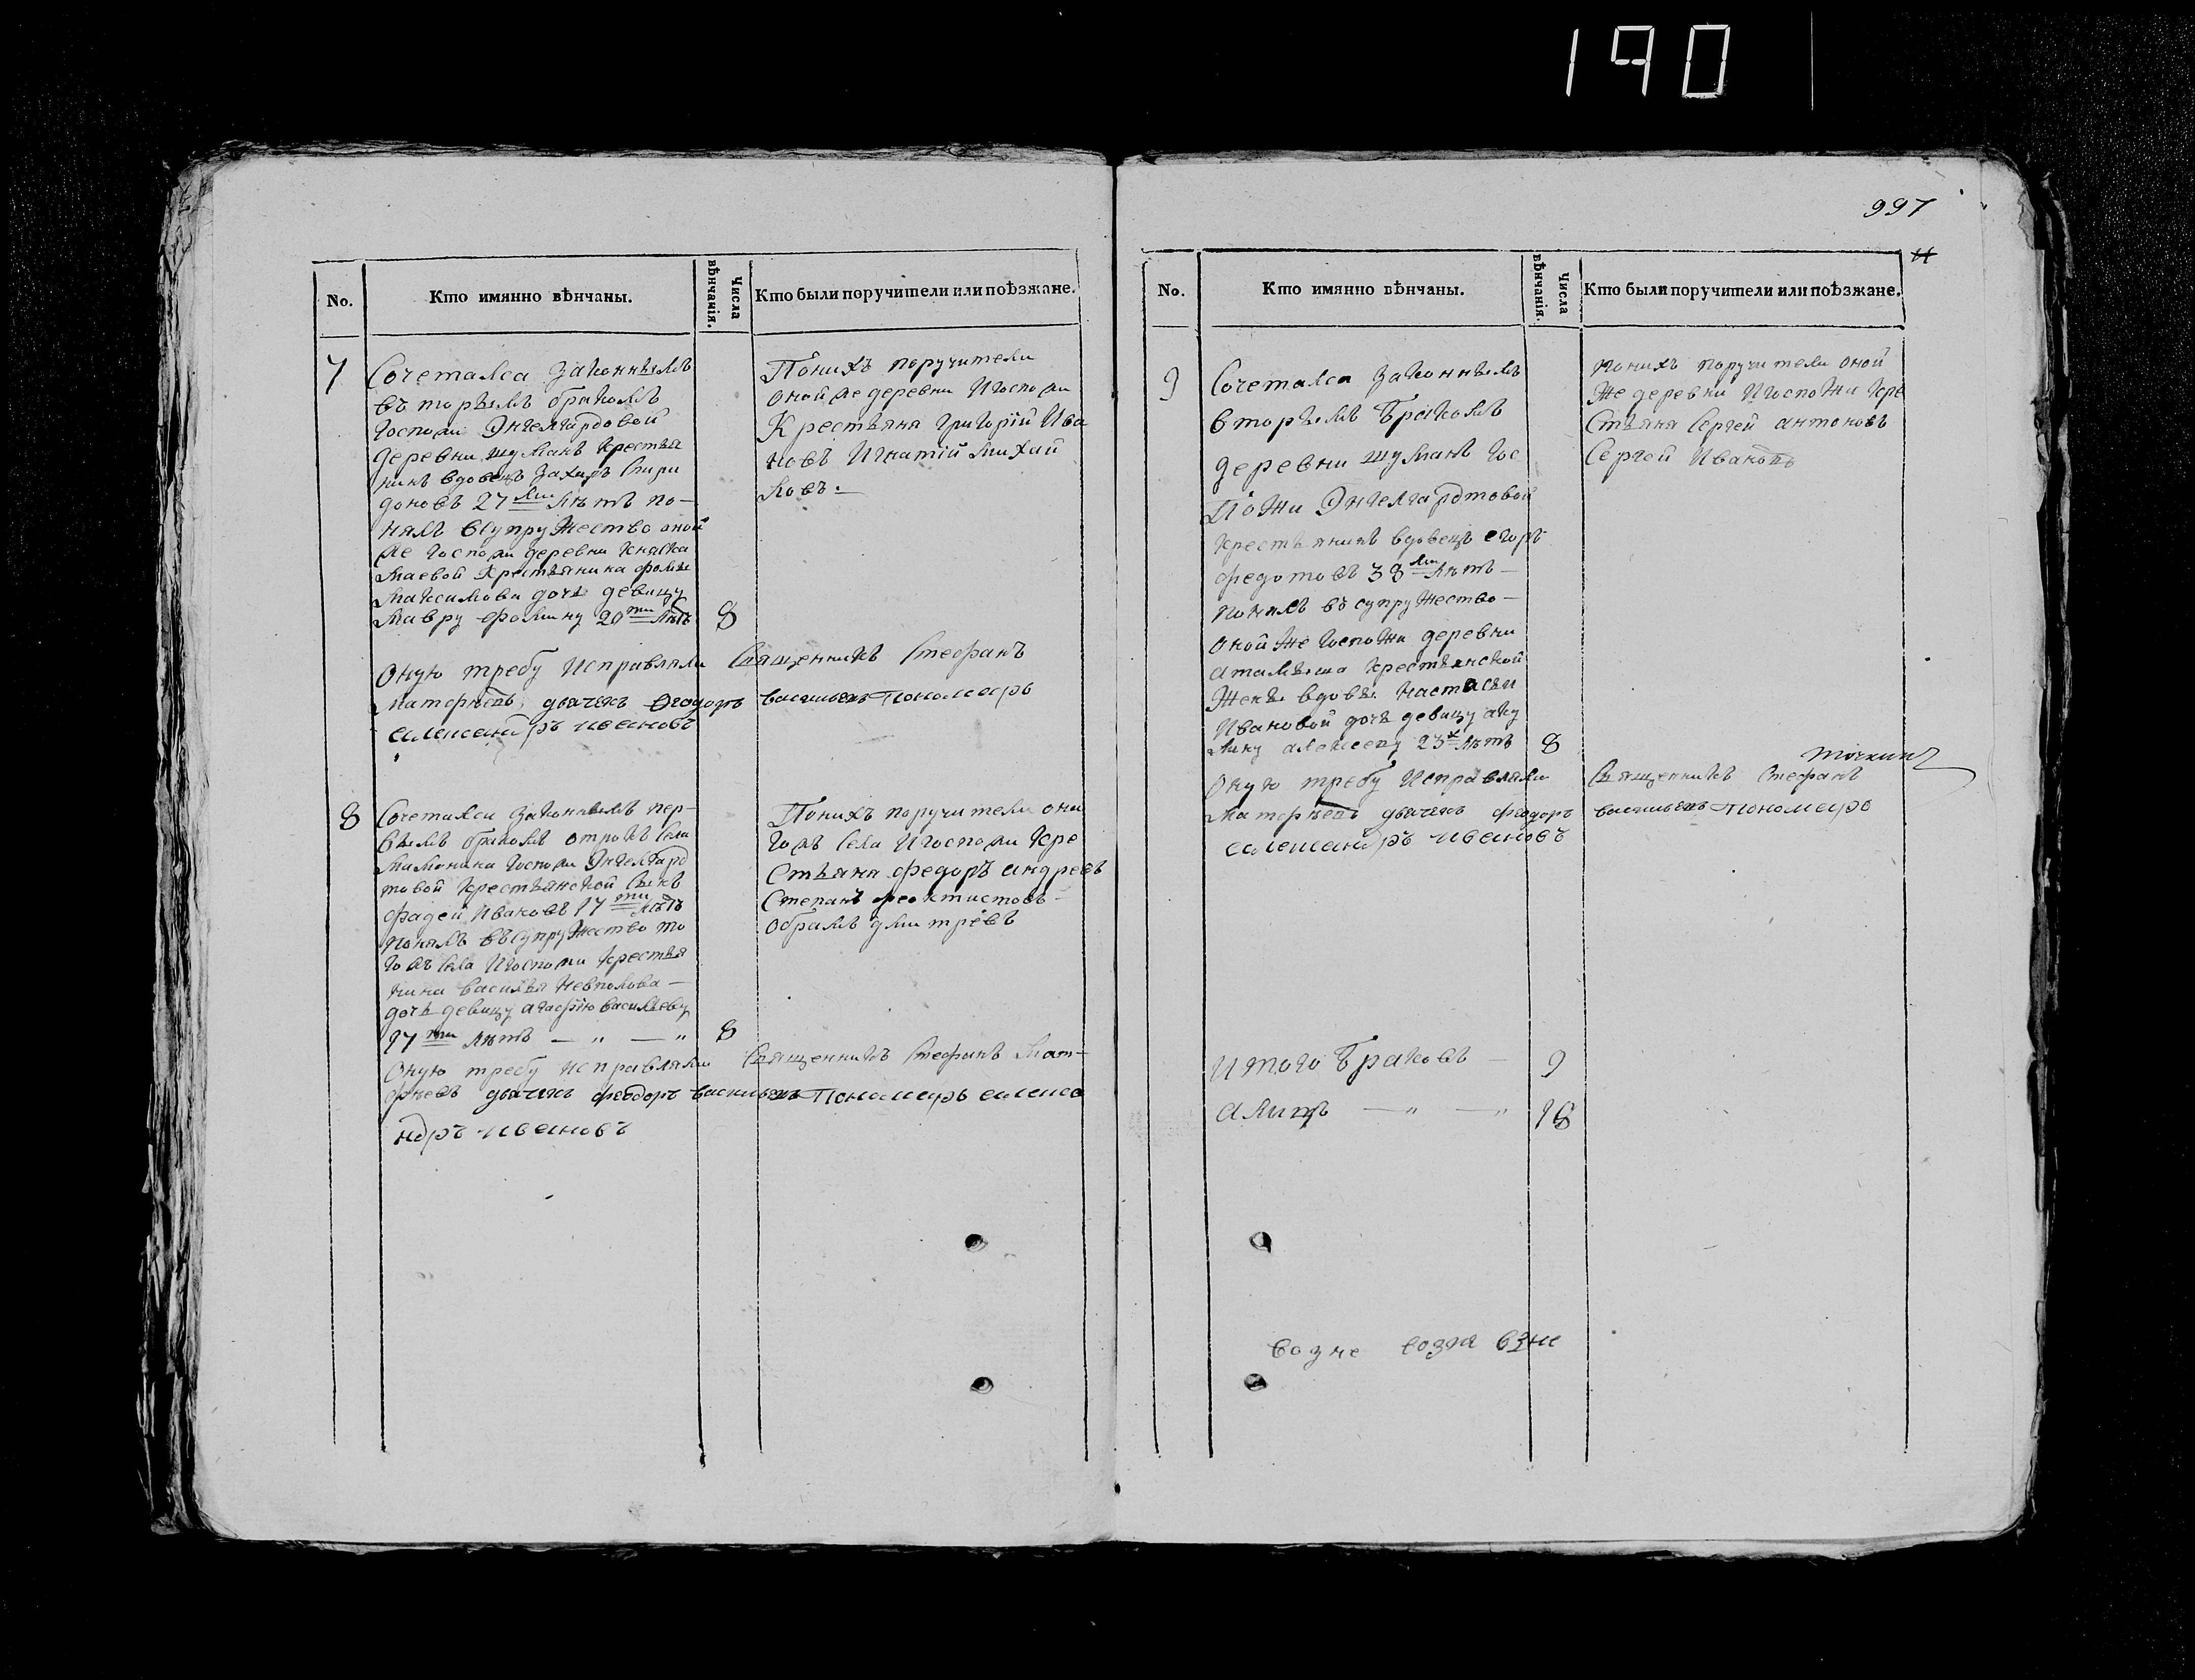 190
997
No.
Кто имянно вѣнчаны.
Числа вѣнчанія.
Кто были поручители или поѣзжане.
7
Сочетался законнымъ
въторымъ бракомъ
Госпожи Энгелгардовой
деревни шуманъ крестья
нинъ вдовецъ Захаръ Спири
доновъ 27 ми лѣтъ по-
нялъ всупружество оной
же Госпожи деревни
маевой крестьянина фомы
максимова дочь девицу
мавру фомину 20 ти лѣтъ
8
Понихъ поручители
оной же деревни Игоспожи
Крестьяна григорій Ива
новъ Игнатій михай
ловъ.
Оную требу Исправляли Священникъ Стефанъ
матфѣевъ, дьячекъ Ѳеодоръ васильевъ Пономарь
александръ ивановъ
8
Сочетался законнымъ пер-
вымъ бракомъ отрокъ села
мамонина Госпожи Энгелгард
товой крестьянской сынъ
фадей Ивановъ 17 ти лѣтъ
понялъ въсупружество то
гожъ села Игоспожи крестья
нина василья
дочь девицу агафію васильеву
17 ти лѣтъ — „ — „
8
Понихъ поручители оно
гожъ села Игоспожи кре
стьяна федоръ андреевъ
Степанъ феоктистовъ
обрамъ дмитревъ
Оную требу исправляли Священникъ Стефанъ мат-
фѣевъ дьячекъ феодоръ васильевъ Пономарь алекса
ндръ ивановъ
No.
Кто имянно вѣнчаны.
Числа вѣнчанія.
Кто были поручители или поѣзжане.
9
Сочетался законнымъ
вторымъ бракомъ
деревни шуманъ гос
пожи Энгелгардтовой
крестьянинъ вдовецъ егоръ
федотовъ 38 ми лѣтъ —
понялъ въ супружество —
оной же госпожи деревни
крестьянской
жены вдовы настасьи
Ивановой дочь девицу аку
лину алексеву 23 х лѣтъ
8
понихъ поручители оной
же деревни Игоспожи кре
стьяна Сергей антоновъ
Сергей Ивановъ
Оную требу исправляли Священникъ Стефанъ
матфѣевъ дьячекъ феодоръ васильевъ Пономарь
александръ ивановъ
итого браковъ — 9
алицъ — „ — „ 18